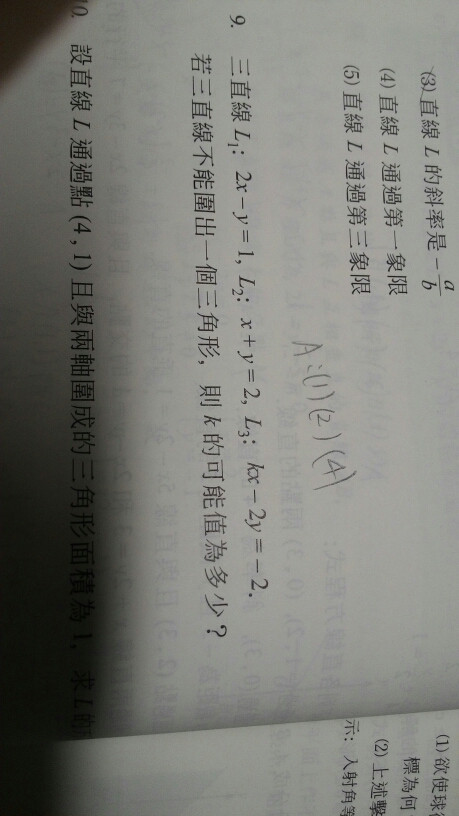 (3) 直線 L 的斜率是 -a/b
(4) 直線 L 通過第一象限
(5) 直線 L 通過第三象限
A:(1)(2)(4)
9. 三直線 L₁: 2x-y=1, L₂: x+y=2, L₃: kx-2y=-2.
若三直線不能圍出一個三角形, 則 k 的可能值為多少?
10. 設直線 L 通過點 (4, 1) 且與兩軸圍成的三角形面積為 1, 求 L 的
(1) 欲使球
標為何
(2) 上述擊
示: 入射角等